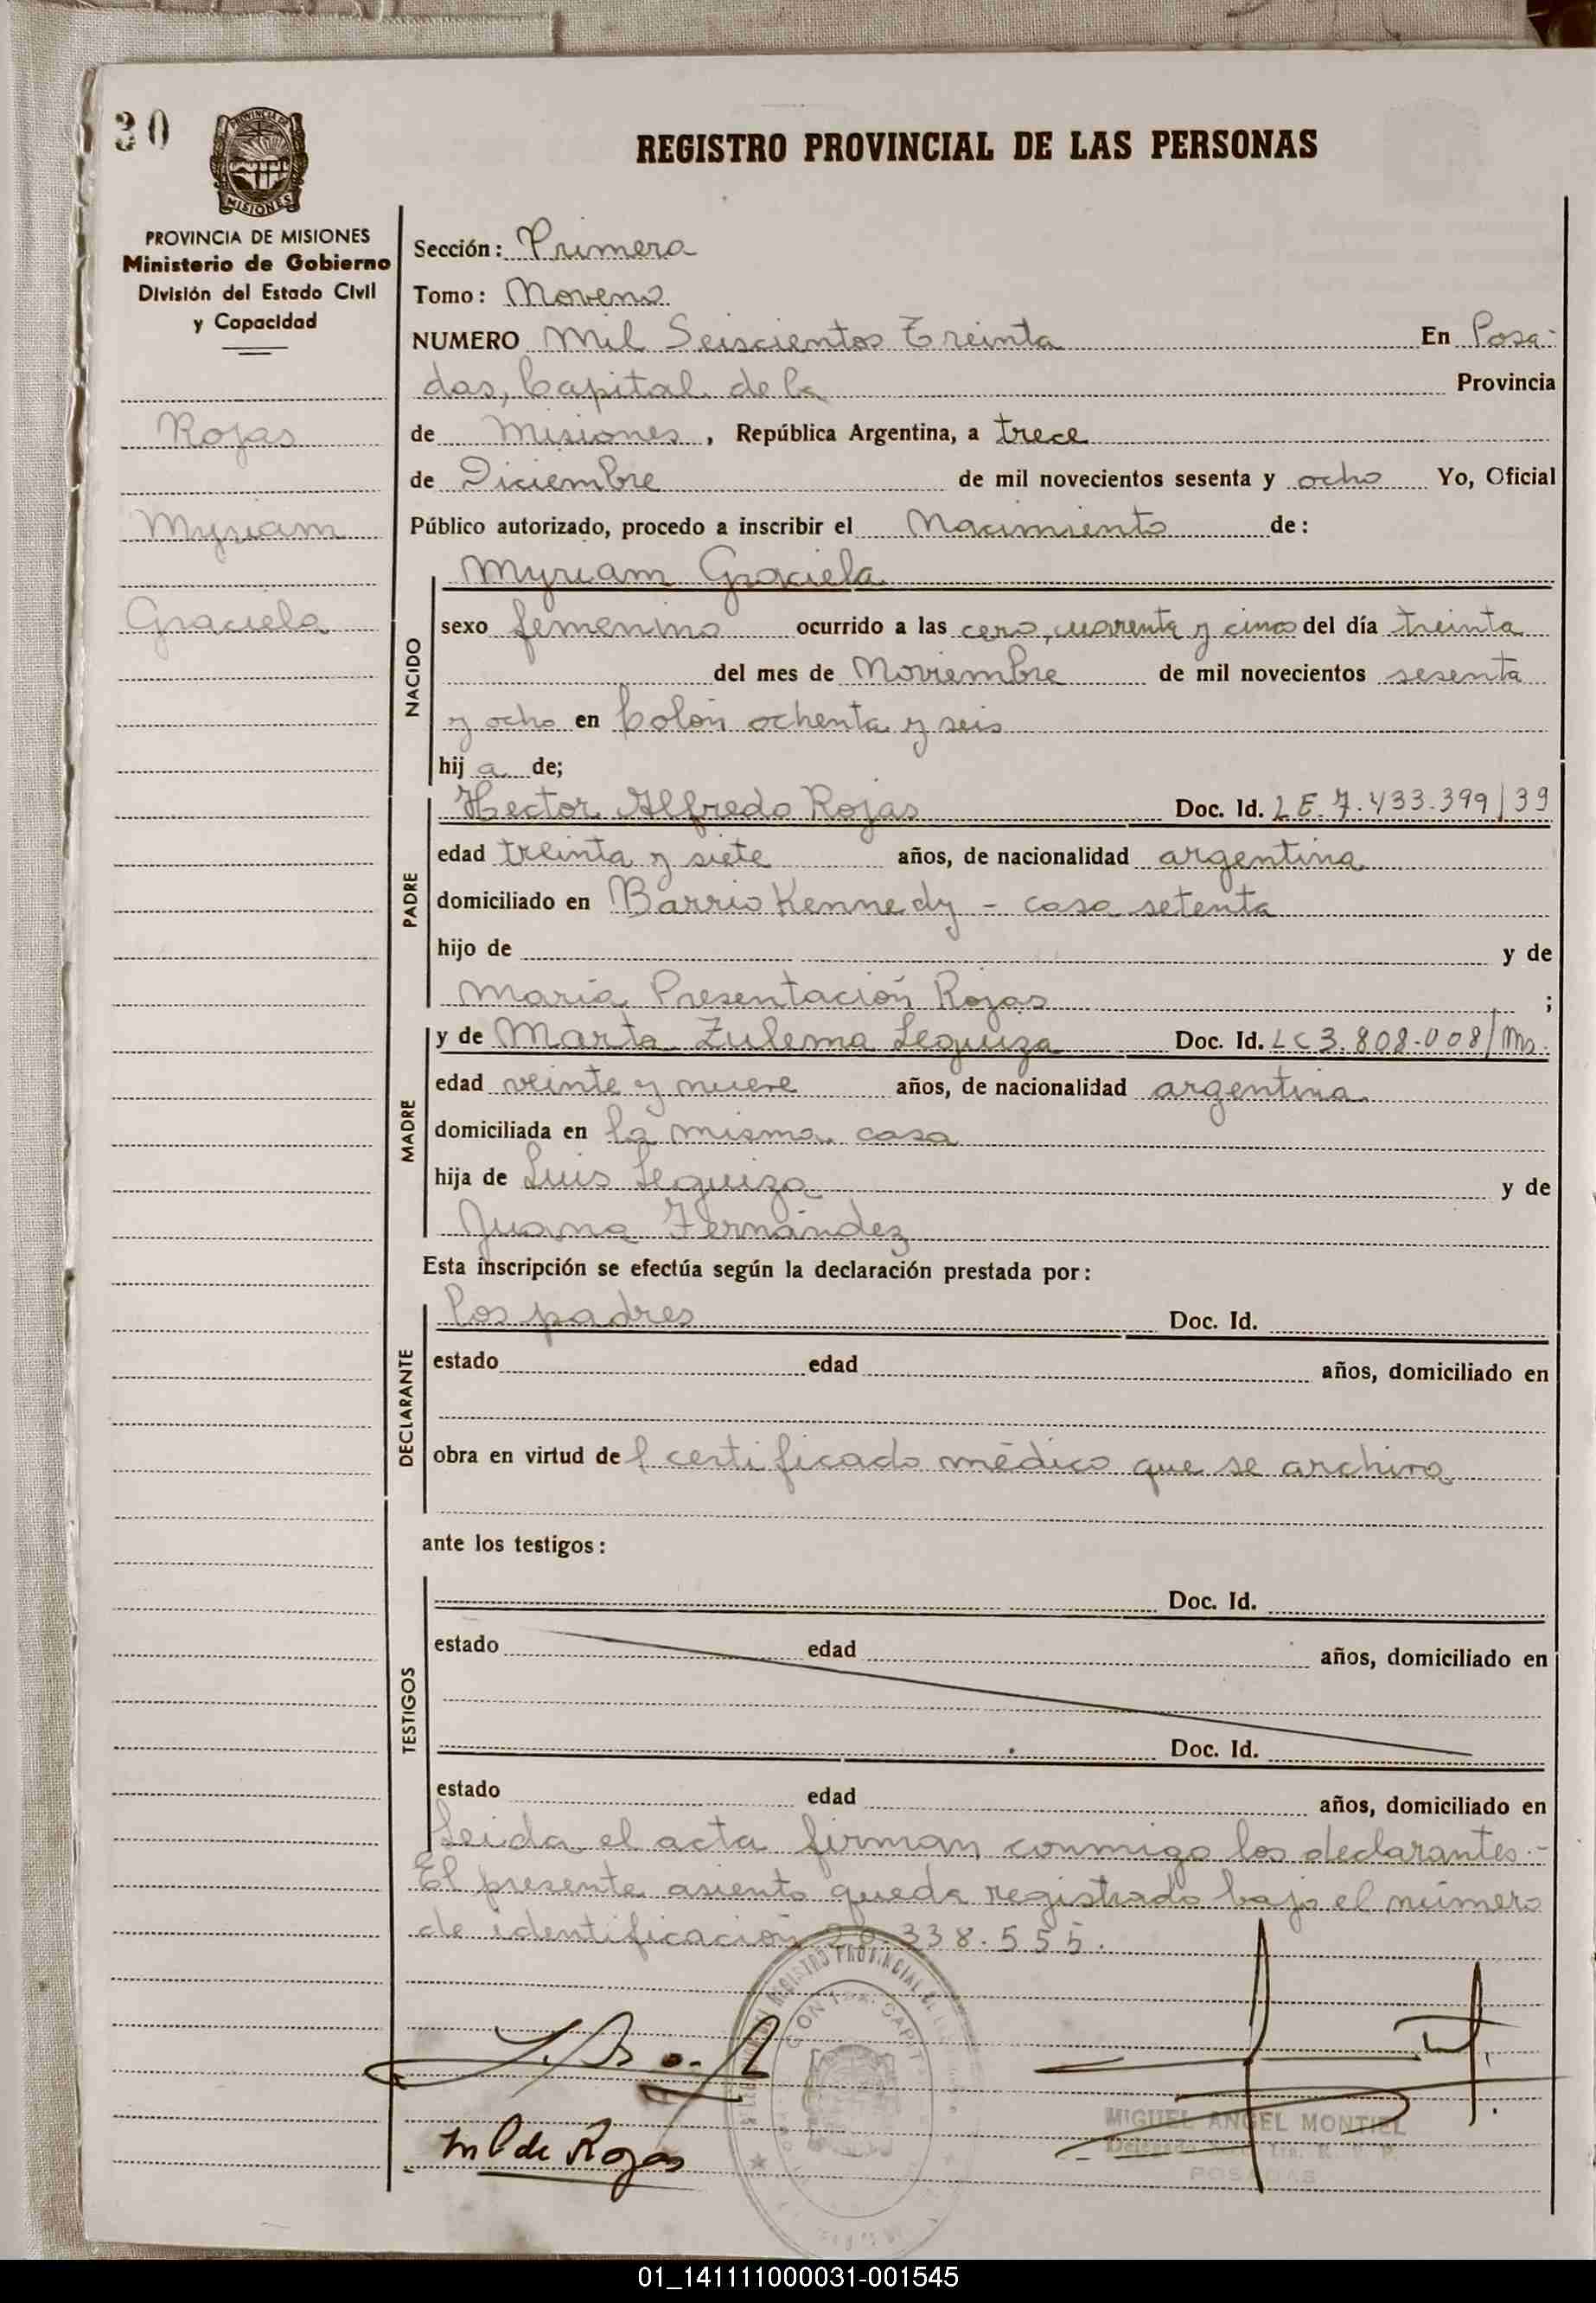 30
PROVINCIA DE
MISIONES
REGISTRO PROVINCIAL DE LAS PERSONAS
PROVINCIA DE MISIONES
Ministerio de Gobierno
División del Estado Civil
y Capacidad
Rojas
Myriam
Graciela
Sección: Primera
Tomo: Noveno
NUMERO Mil Seiscientos Treinta En Posa-
das, Capital de la Provincia
de Misiones, República Argentina, a trece
de Diciembre de mil novecientos sesenta y ocho Yo, Oficial
Público autorizado, procedo a inscribir el Nacimiento de:
Myriam Graciela
NACIDO
sexo femenino ocurrido a las cero, cuarenta y cinco del día treinta
del mes de Noviembre de mil novecientos sesenta
y ocho en Colón ochenta y seis
hij a de;
PADRE
Hector Alfredo Rojas Doc. Id. LE. 7.433.399/39
edad treinta y siete años, de nacionalidad argentina
domiciliado en Barrio Kennedy - casa setenta
hijo de y de
María Presentación Rojas ;
MADRE
y de Marta Zulema Leguiza Doc. Id. LC 3.808.008/Ms.
edad veinte y nueve años, de nacionalidad argentina
domiciliada en la misma casa
hija de Luis Leguiza y de
Juana Fernández
Esta inscripción se efectúa según la declaración prestada por:
DECLARANTE
los padres Doc. Id.
estado edad años, domiciliado en
obra en virtud de l certificado médico que se archiva
ante los testigos:
TESTIGOS
Doc. Id.
estado edad años, domiciliado en
Doc. Id.
estado edad años, domiciliado en
Leida el acta firman conmigo los declarantes.-
El presente asiento queda registrado bajo el número
de identificación 20.338.555.
REGISTRO PROVINCIAL DE
M L de Rojas
MIGUEL ANGEL MONTIEL
POSADAS
01_141111000031-001545